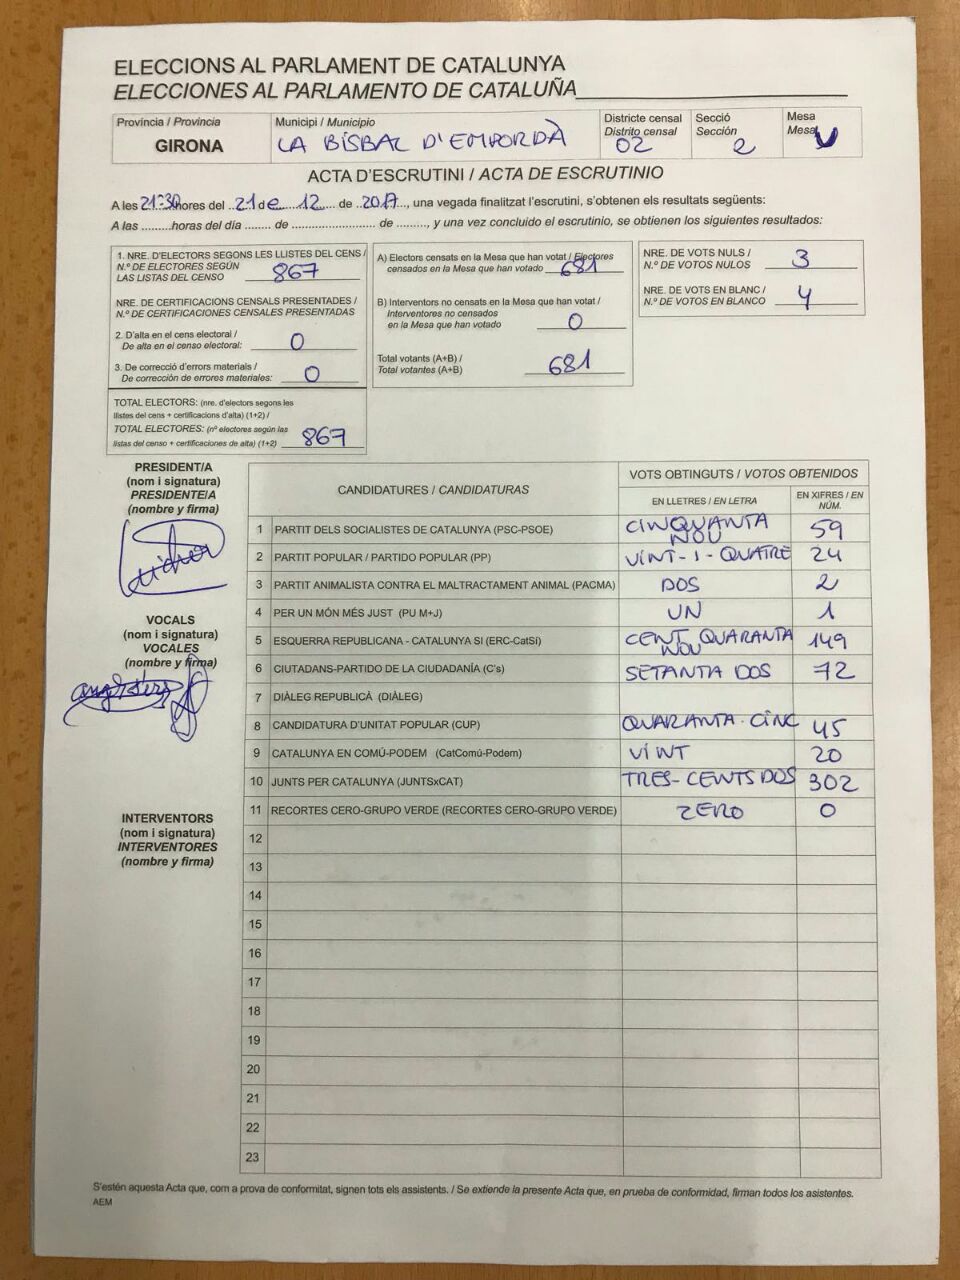 ELECCIONS AL PARLAMENT DE CATALUNYA
ELECCIONES AL PARLAMENTO DE CATALUÑA
Província / Provincia
GIRONA
Municipi / Municipio
LA BISBAL D'EMPORDÀ
Districte censal
Distrito censal
02
Secció
Sección
2
Mesa
Mesa
U
ACTA D'ESCRUTINI / ACTA DE ESCRUTINIO
A les 21:30 hores del 21 de 12 de 2017, una vegada finalitzat l'escrutini, s'obtenen els resultats següents:
A las .........horas del día ....... de ........................ de ........, y una vez concluido el escrutinio, se obtienen los siguientes resultados:
1. NRE. D'ELECTORS SEGONS LES LLISTES DEL CENS /
N.º DE ELECTORES SEGÚN
LAS LISTAS DEL CENSO 867
NRE. DE CERTIFICACIONS CENSALS PRESENTADES /
N.º DE CERTIFICACIONES CENSALES PRESENTADAS
2. D'alta en el cens electoral /
De alta en el censo electoral: 0
3. De correcció d'errors materials /
De corrección de errores materiales: 0
TOTAL ELECTORS: (nre. d'electors segons les
llistes del cens + certificacions d'alta) (1+2) /
TOTAL ELECTORES: (nº electores según las
listas del censo + certificaciones de alta) (1+2) 867
A) Electors censats en la Mesa que han votat / Electores
censados en la Mesa que han votado 681
B) Interventors no censats en la Mesa que han votat /
Interventores no censados
en la Mesa que han votado 0
Total votants (A+B) /
Total votantes (A+B) 681
NRE. DE VOTS NULS /
N.º DE VOTOS NULOS 3
NRE. DE VOTS EN BLANC /
N.º DE VOTOS EN BLANCO 4
PRESIDENT/A
(nom i signatura)
PRESIDENTE/A
(nombre y firma)
VOCALS
(nom i signatura)
VOCALES
(nombre y firma)
INTERVENTORS
(nom i signatura)
INTERVENTORES
(nombre y firma)
CANDIDATURES / CANDIDATURAS
VOTS OBTINGUTS / VOTOS OBTENIDOS
EN LLETRES / EN LETRA
EN XIFRES / EN NÚM.
1 PARTIT DELS SOCIALISTES DE CATALUNYA (PSC-PSOE) CINQUANTA NOU 59
2 PARTIT POPULAR / PARTIDO POPULAR (PP) VINT-I-QUATRE 24
3 PARTIT ANIMALISTA CONTRA EL MALTRACTAMENT ANIMAL (PACMA) DOS 2
4 PER UN MÓN MÉS JUST (PU M+J) UN 1
5 ESQUERRA REPUBLICANA - CATALUNYA SÍ (ERC-CatSí) CENT QUARANTA NOU 149
6 CIUTADANS-PARTIDO DE LA CIUDADANÍA (C's) SETANTA DOS 72
7 DIÀLEG REPUBLICÀ (DIÀLEG)
8 CANDIDATURA D'UNITAT POPULAR (CUP) QUARANTA·CINC 45
9 CATALUNYA EN COMÚ-PODEM (CatComú-Podem) VINT 20
10 JUNTS PER CATALUNYA (JUNTSxCAT) TRES-CENTS DOS 302
11 RECORTES CERO-GRUPO VERDE (RECORTES CERO-GRUPO VERDE) ZERO 0
12
13
14
15
16
17
18
19
20
21
22
23
S'estén aquesta Acta que, com a prova de conformitat, signen tots els assistents. / Se extiende la presente Acta que, en prueba de conformidad, firman todos los asistentes.
AEM